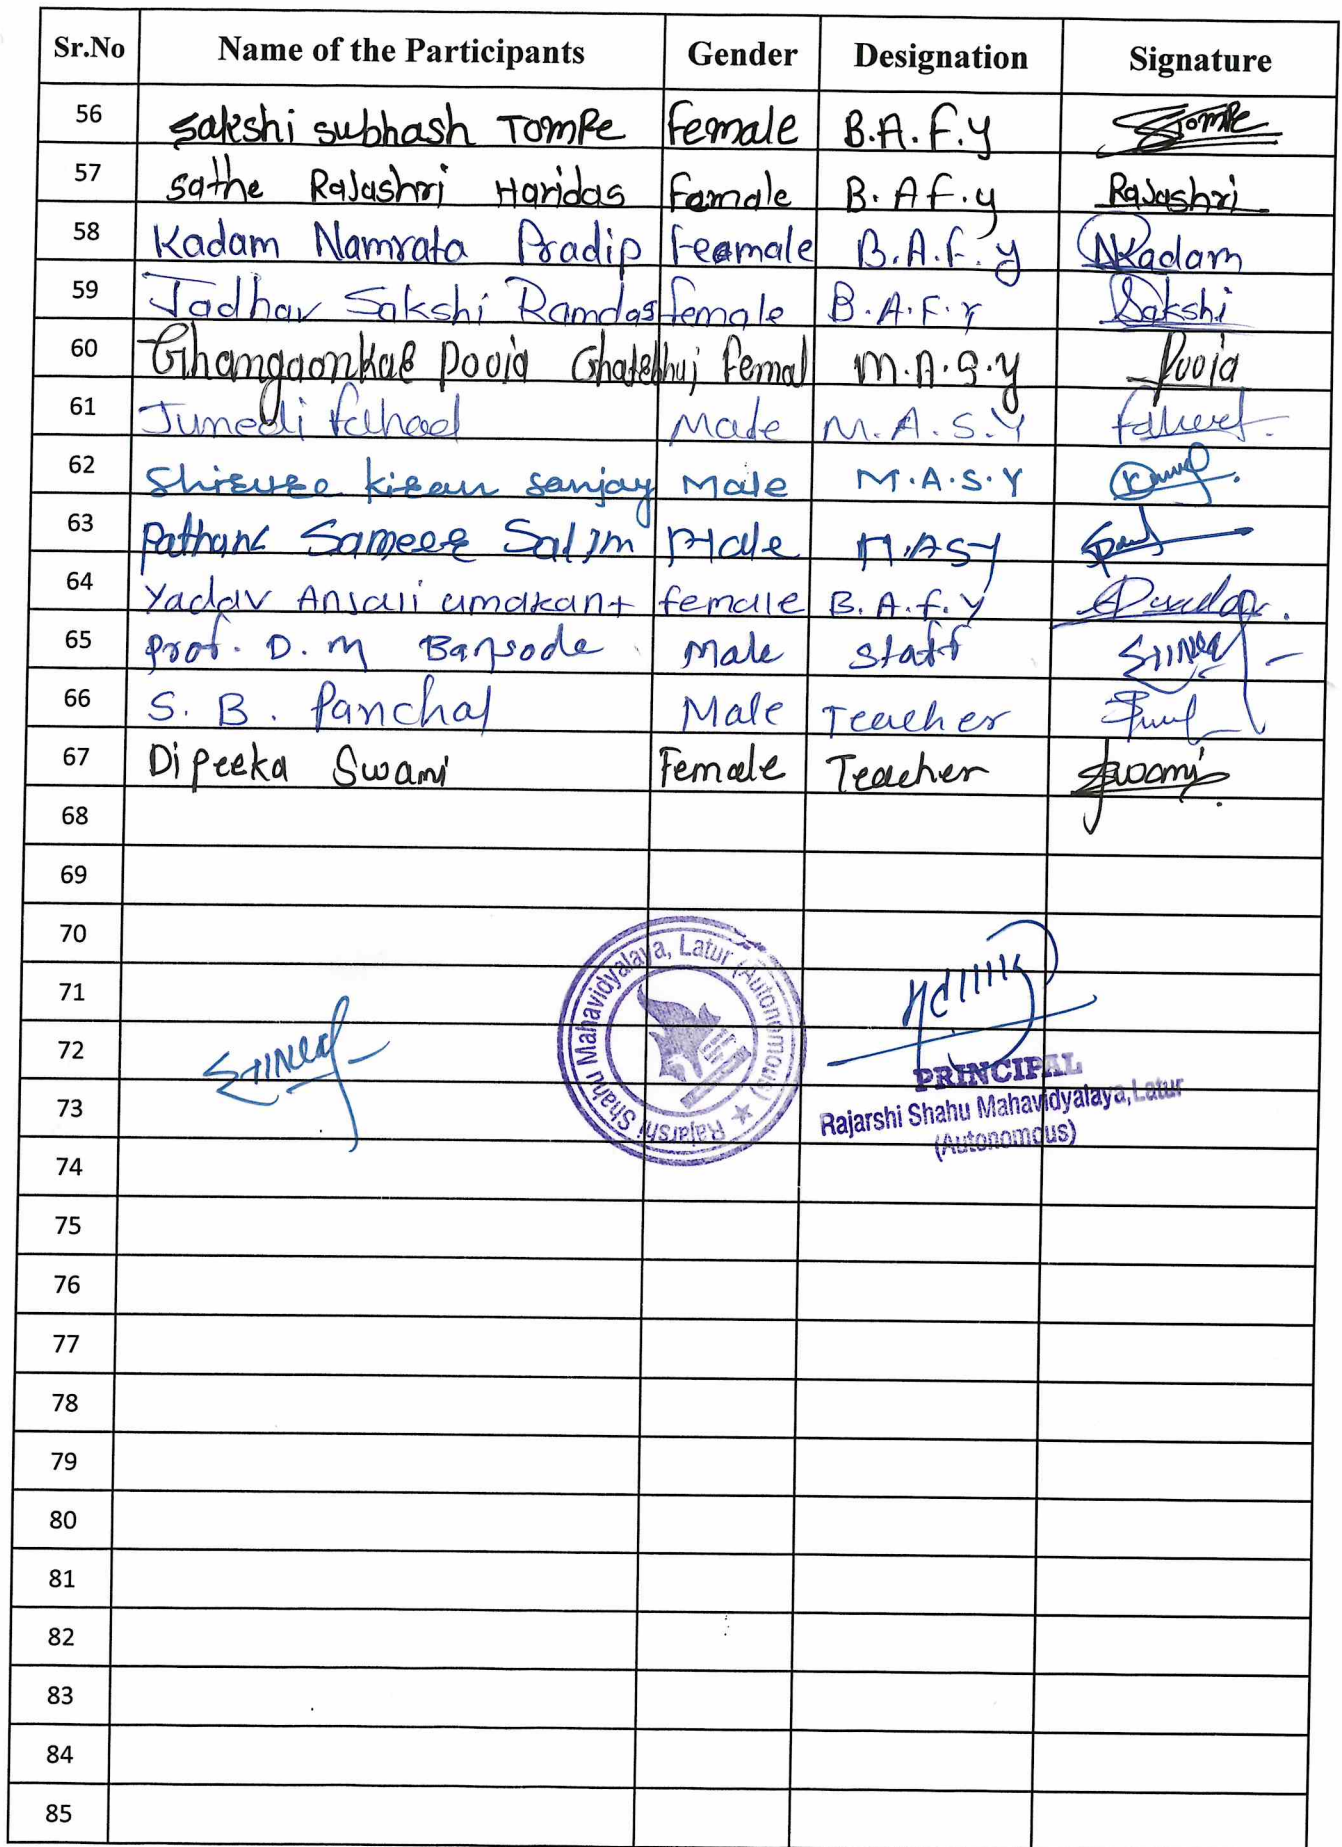 Sr.No Name of the Participants Gender Designation Signature
56 Sakshi subhash Tompe Female B.A.F.Y Tompe
57 Sathe Rajashri Haridas Female B.A F.y Rajashri
58 Kadam Namrata Pradip Feamale B.A.F.y NKadam
59 Jadhav Sakshi Ramdas female B.A.F.Y Sakshi
60 Pooja Femal M.A.S.y Pooja
61 Junedi fahad Male M.A.S.Y
62 kiran sanjay Male M.A.S.Y
63 Sameer Salim Male M.ASY
64 Yadav Anjali umakant female B.A.f.y
65 Prof. D. M Bansode Male Staff
66 S. B. Panchal Male Teacher
67 Dipeeka Swami Female Teacher Swami
68
69
70
71
72
73
74
75
76
77
78
79
80
81
82
83
84
85
Rajarshi Shahu Mahavidyalaya, Latur (Autonomous) ★
PRINCIPAL
Rajarshi Shahu Mahavidyalaya, Latur
(Autonomous)